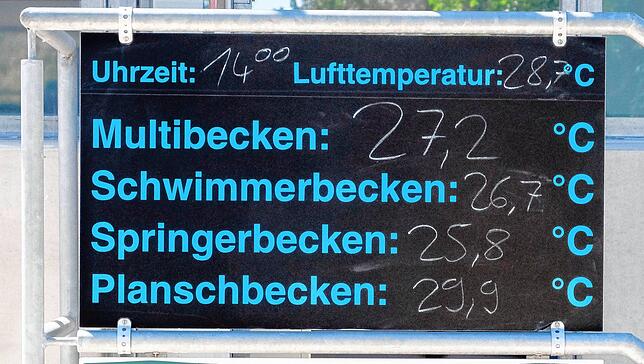 Uhrzeit: 14⁰⁰ Lufttemperatur: 28,7 °C
Multibecken: 27,2 °C
Schwimmerbecken: 26,7 °C
Springerbecken: 25,8 °C
Planschbecken: 29,9 °C